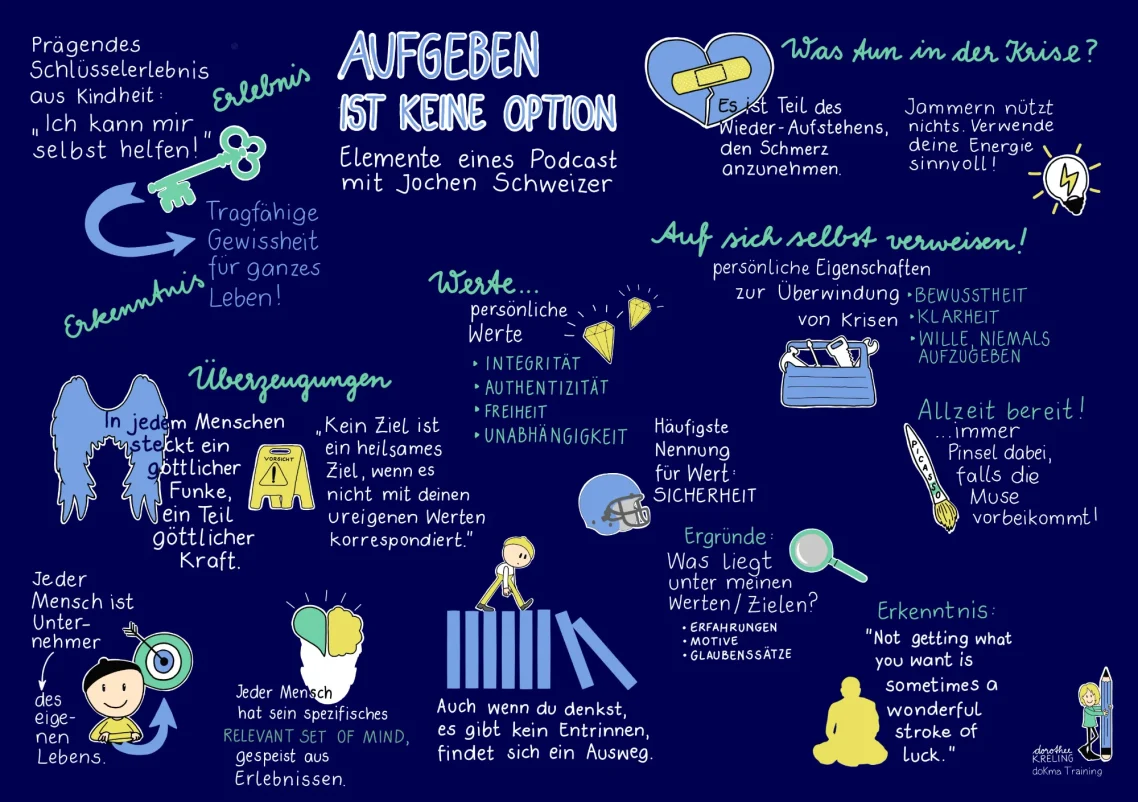 Prägendes
Schlüsselerlebnis
aus Kindheit:
"Ich kann mir
selbst helfen!"
Erlebnis
Tragfähige
Gewissheit
für ganzes
Leben!
Erkenntnis
AUFGEBEN
IST KEINE OPTION
Elemente eines Podcast
mit Jochen Schweizer
Was tun in der Krise?
Es ist Teil des
Wieder-Aufstehens,
den Schmerz
anzunehmen.
Jammern nützt
nichts. Verwende
deine Energie
sinnvoll!
Auf sich selbst verweisen!
persönliche Eigenschaften
zur Überwindung
von Krisen
BEWUSSTHEIT
KLARHEIT
WILLE, NIEMALS
AUFZUGEBEN
Werte...
persönliche
Werte
INTEGRITÄT
AUTHENTIZITÄT
FREIHEIT
UNABHÄNGIGKEIT
Überzeugungen
In jedem Menschen
steckt ein
göttlicher
Funke,
ein Teil
göttlicher
Kraft.
VORSICHT
"Kein Ziel ist
ein heilsames
Ziel, wenn es
nicht mit deinen
ureigenen Werten
korrespondiert."
Häufigste
Nennung
für Wert:
SICHERHEIT
Allzeit bereit!
...immer
Pinsel dabei,
falls die
Muse
vorbeikommt!
PICASSO
Ergründe:
Was liegt
unter meinen
Werten/Zielen?
• ERFAHRUNGEN
• MOTIVE
• GLAUBENSSÄTZE
Jeder
Mensch ist
Unter-
nehmer
des
eige-
nen
Lebens.
Jeder Mensch
hat sein spezifisches
RELEVANT SET OF MIND,
gespeist aus
Erlebnissen.
Auch wenn du denkst,
es gibt kein Entrinnen,
findet sich ein Ausweg.
Erkenntnis:
"Not getting what
you want is
sometimes a
wonderful
stroke of
luck."
dorothee
KRELING
doKma Training